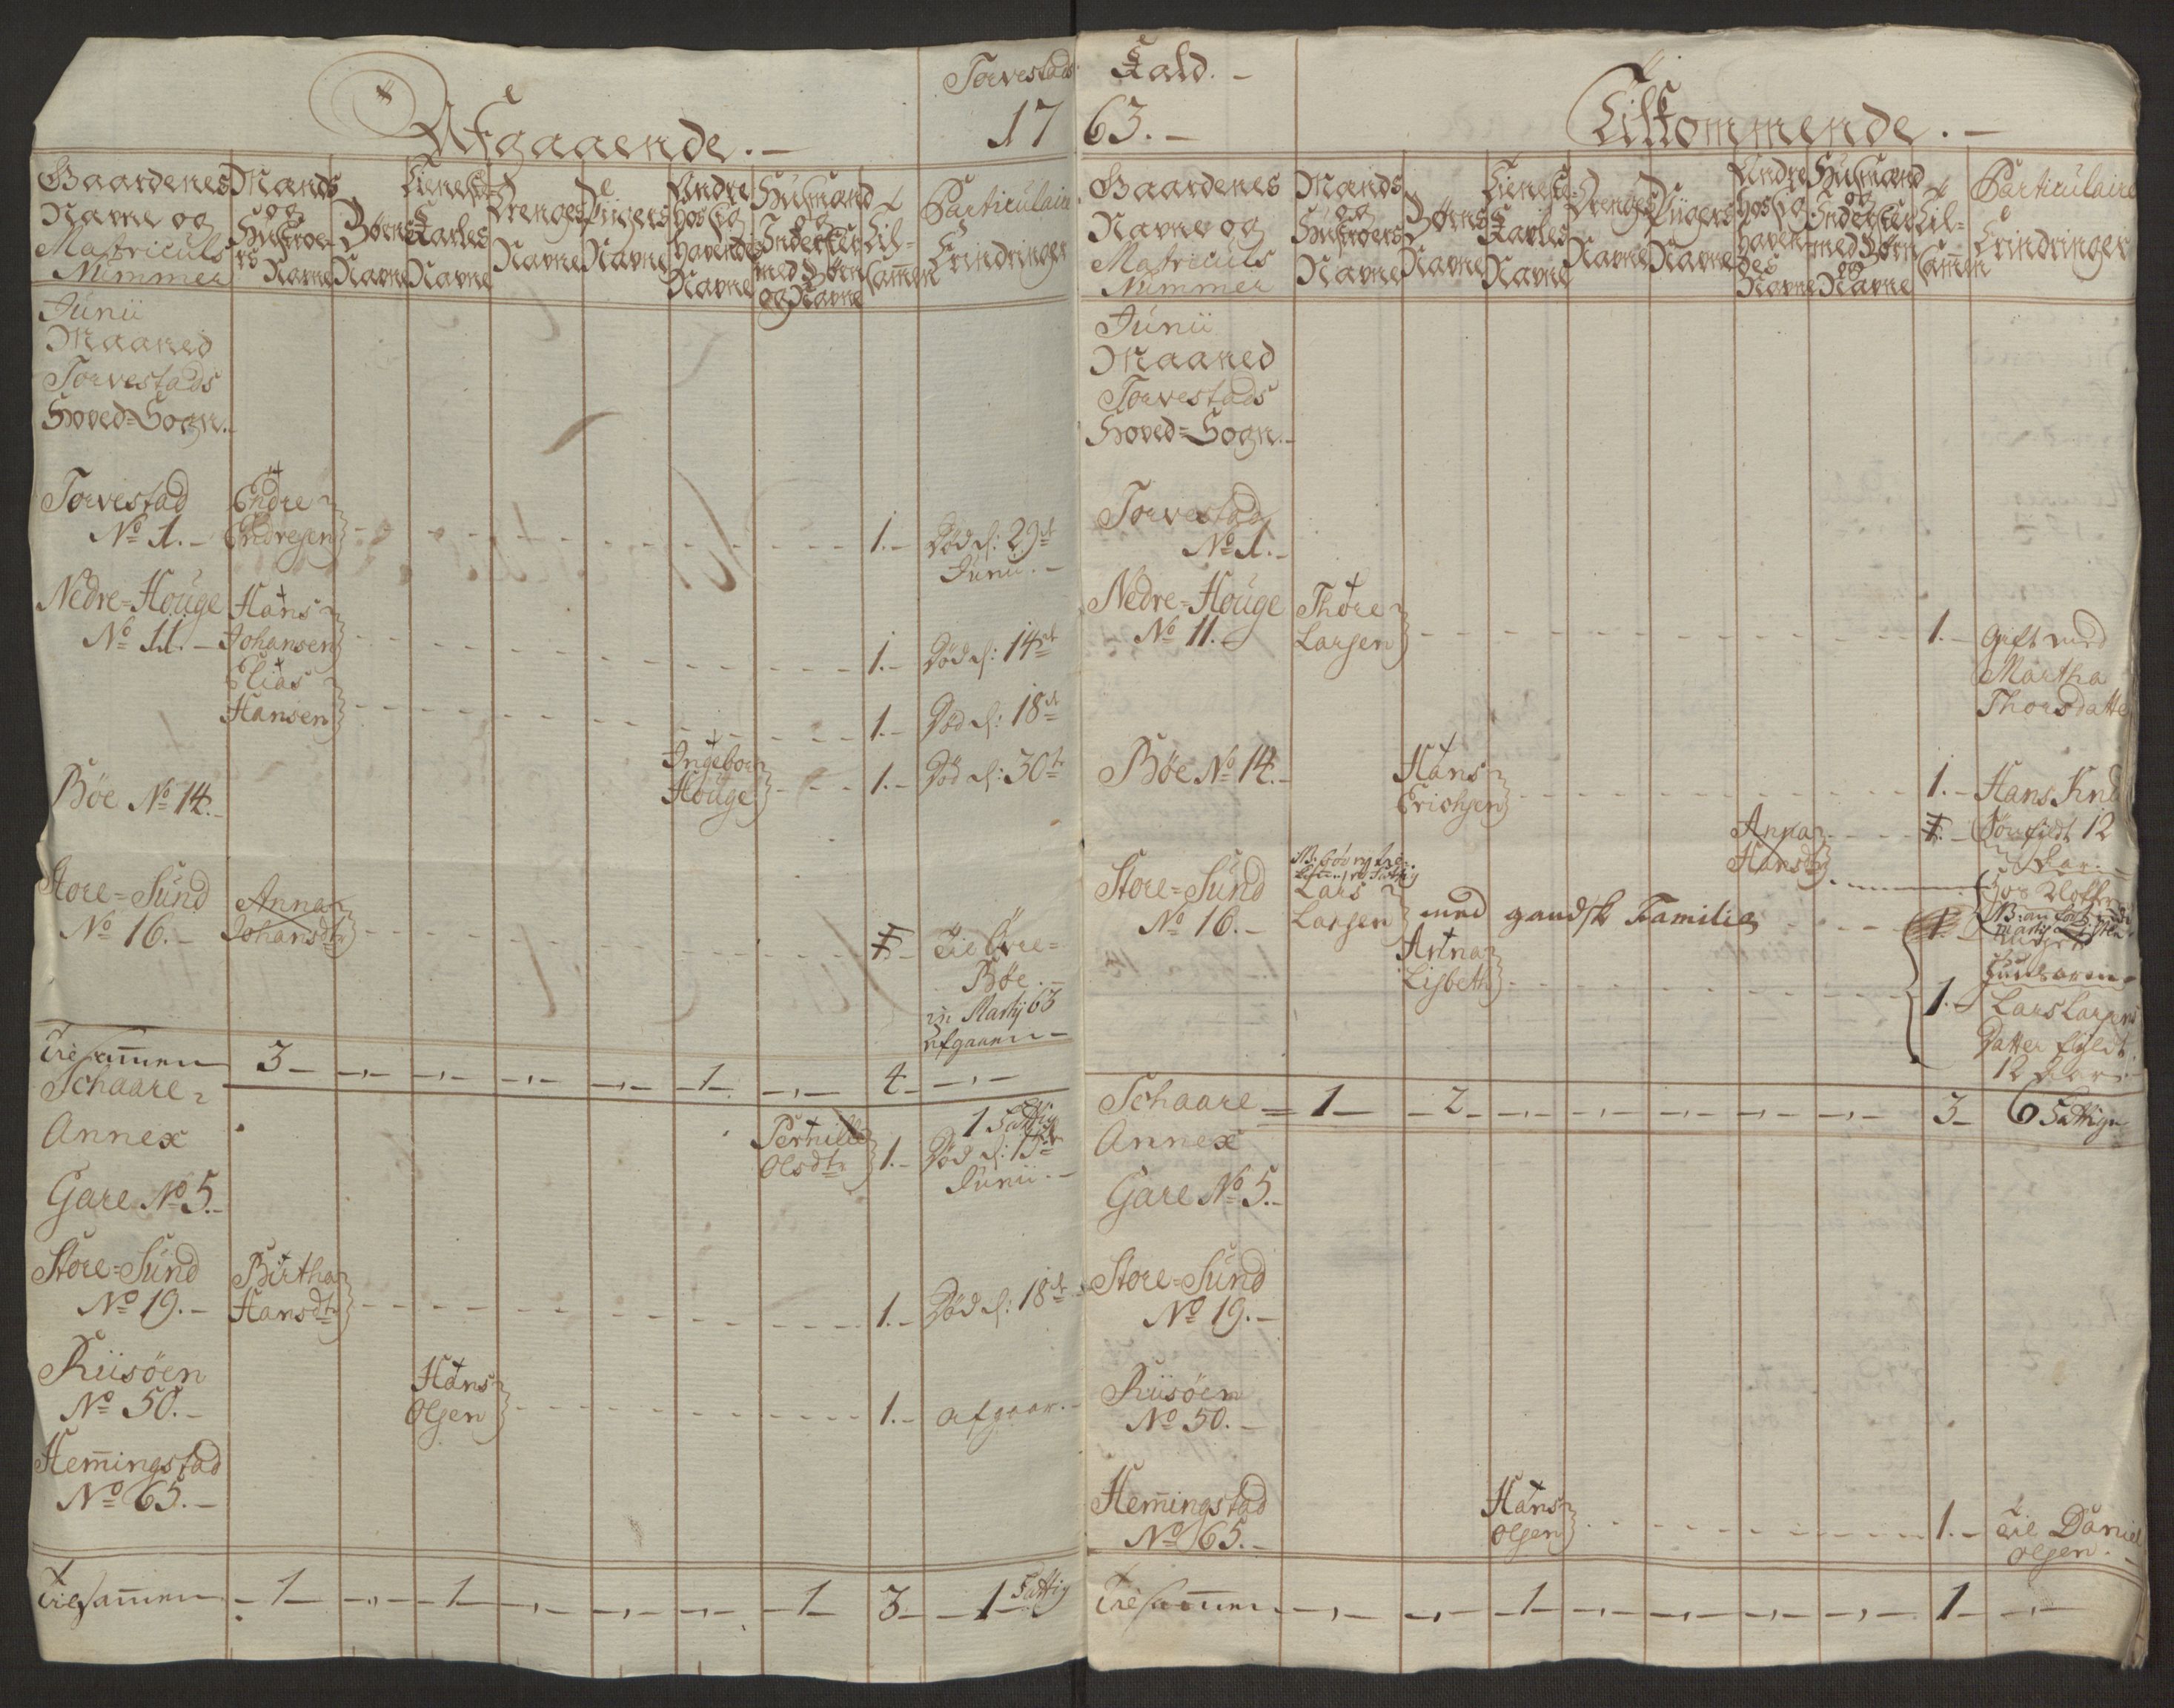 Torvestads
Afgaaende.-
17
Gaardenes
Navne og
Matriculs
Nummer
Mands
og
Hustroe
rs
Navne
Børns
Navne
Tieneste
Karles
Navne
Drenges
Navne
Piigers
Navne
Andre
Hos sig
havendes
Navne
Huusmænd
og
Inderster
med Børn
og Navne
Til-
sam̅en
Particulaire
Erindringer
Junii
Maaned
Torvestads
Hoved=Sogn.-
Torvestad
No 1.-
Endre
Endresen
1.-
Død d: 29de
Junii.-
Nedre=Houge
No 11.-
Hans
Johansen
1.-
Død d: 14de
Elias
Hansen
1.-
Død d: 18de
Ingebor
Houge
1.-
Død d: 30te
Bøe No 14.-
Store=Sund
No 16.-
Anna
Johansdtr
1.-
Til Øvre=
Bøe.-
in Martij 63
afgaaen-
Tilsam̅men 3 - 1 - 4 -
Schaare
Annex
1 Fattig
Pernille
Olsdtr
1.-
Død d: 15de
Junii.-
Gare No 5.-
Store=Sund
No 19.-
Birtha
Hansdtr
1.-
Død d: 18de
Riisöen
No 50.-
Hans
Olsen
1.-
afgaar.-
Hem̅ingstad
No 65.-
Tilsam̅men - 1 - 1 - 1 3 - 1 Fattig
Kald.-
63.-
Tilkommende.-
Gaardenes
Navne og
Matriculs
Nummer
Mands
og
Hustroers
Navne
Børns
Navne
Tieneste
Karles
Navne
Drenges
Navne
Piigers
Navne
Andre
Hos sig
haven
des
Navne
Huusmænd
og
Inderster
med Børn
og
Navne
Til-
sam̅en
Particulaire
Erindringer
Junii
Maaned
Torvestads
Hoved=Sogn.-
Torvestad
No 1.-
Nedre=Houge
No 11.-
Thore
Larsen
1.-
Gift med
Martha
Thorsdatte
Bøe No 14.-
Hans
Erichsen
1.-
Hans
Søn fyldt 12
Aar.-
Anna
Hansdtr
1.-
Store=Sund
No 16.-
Lars
Larsen
med gandske Familie
1.-
Anna
Lisbeth
1.-
Lars Larsens
Datter fyldt
12 Aar.-
Schaare= 1 - 2 - 3 - 6 Fattige
Annex
Gare No 5.-
Store=Sund
No 19.-
Riisöen
No 50.-
Hem̅ingstad
No 65.-
Hans
Olsen
1.-
til Daniel
Olsen.-
Tilsam̅men - 1 - 1 -